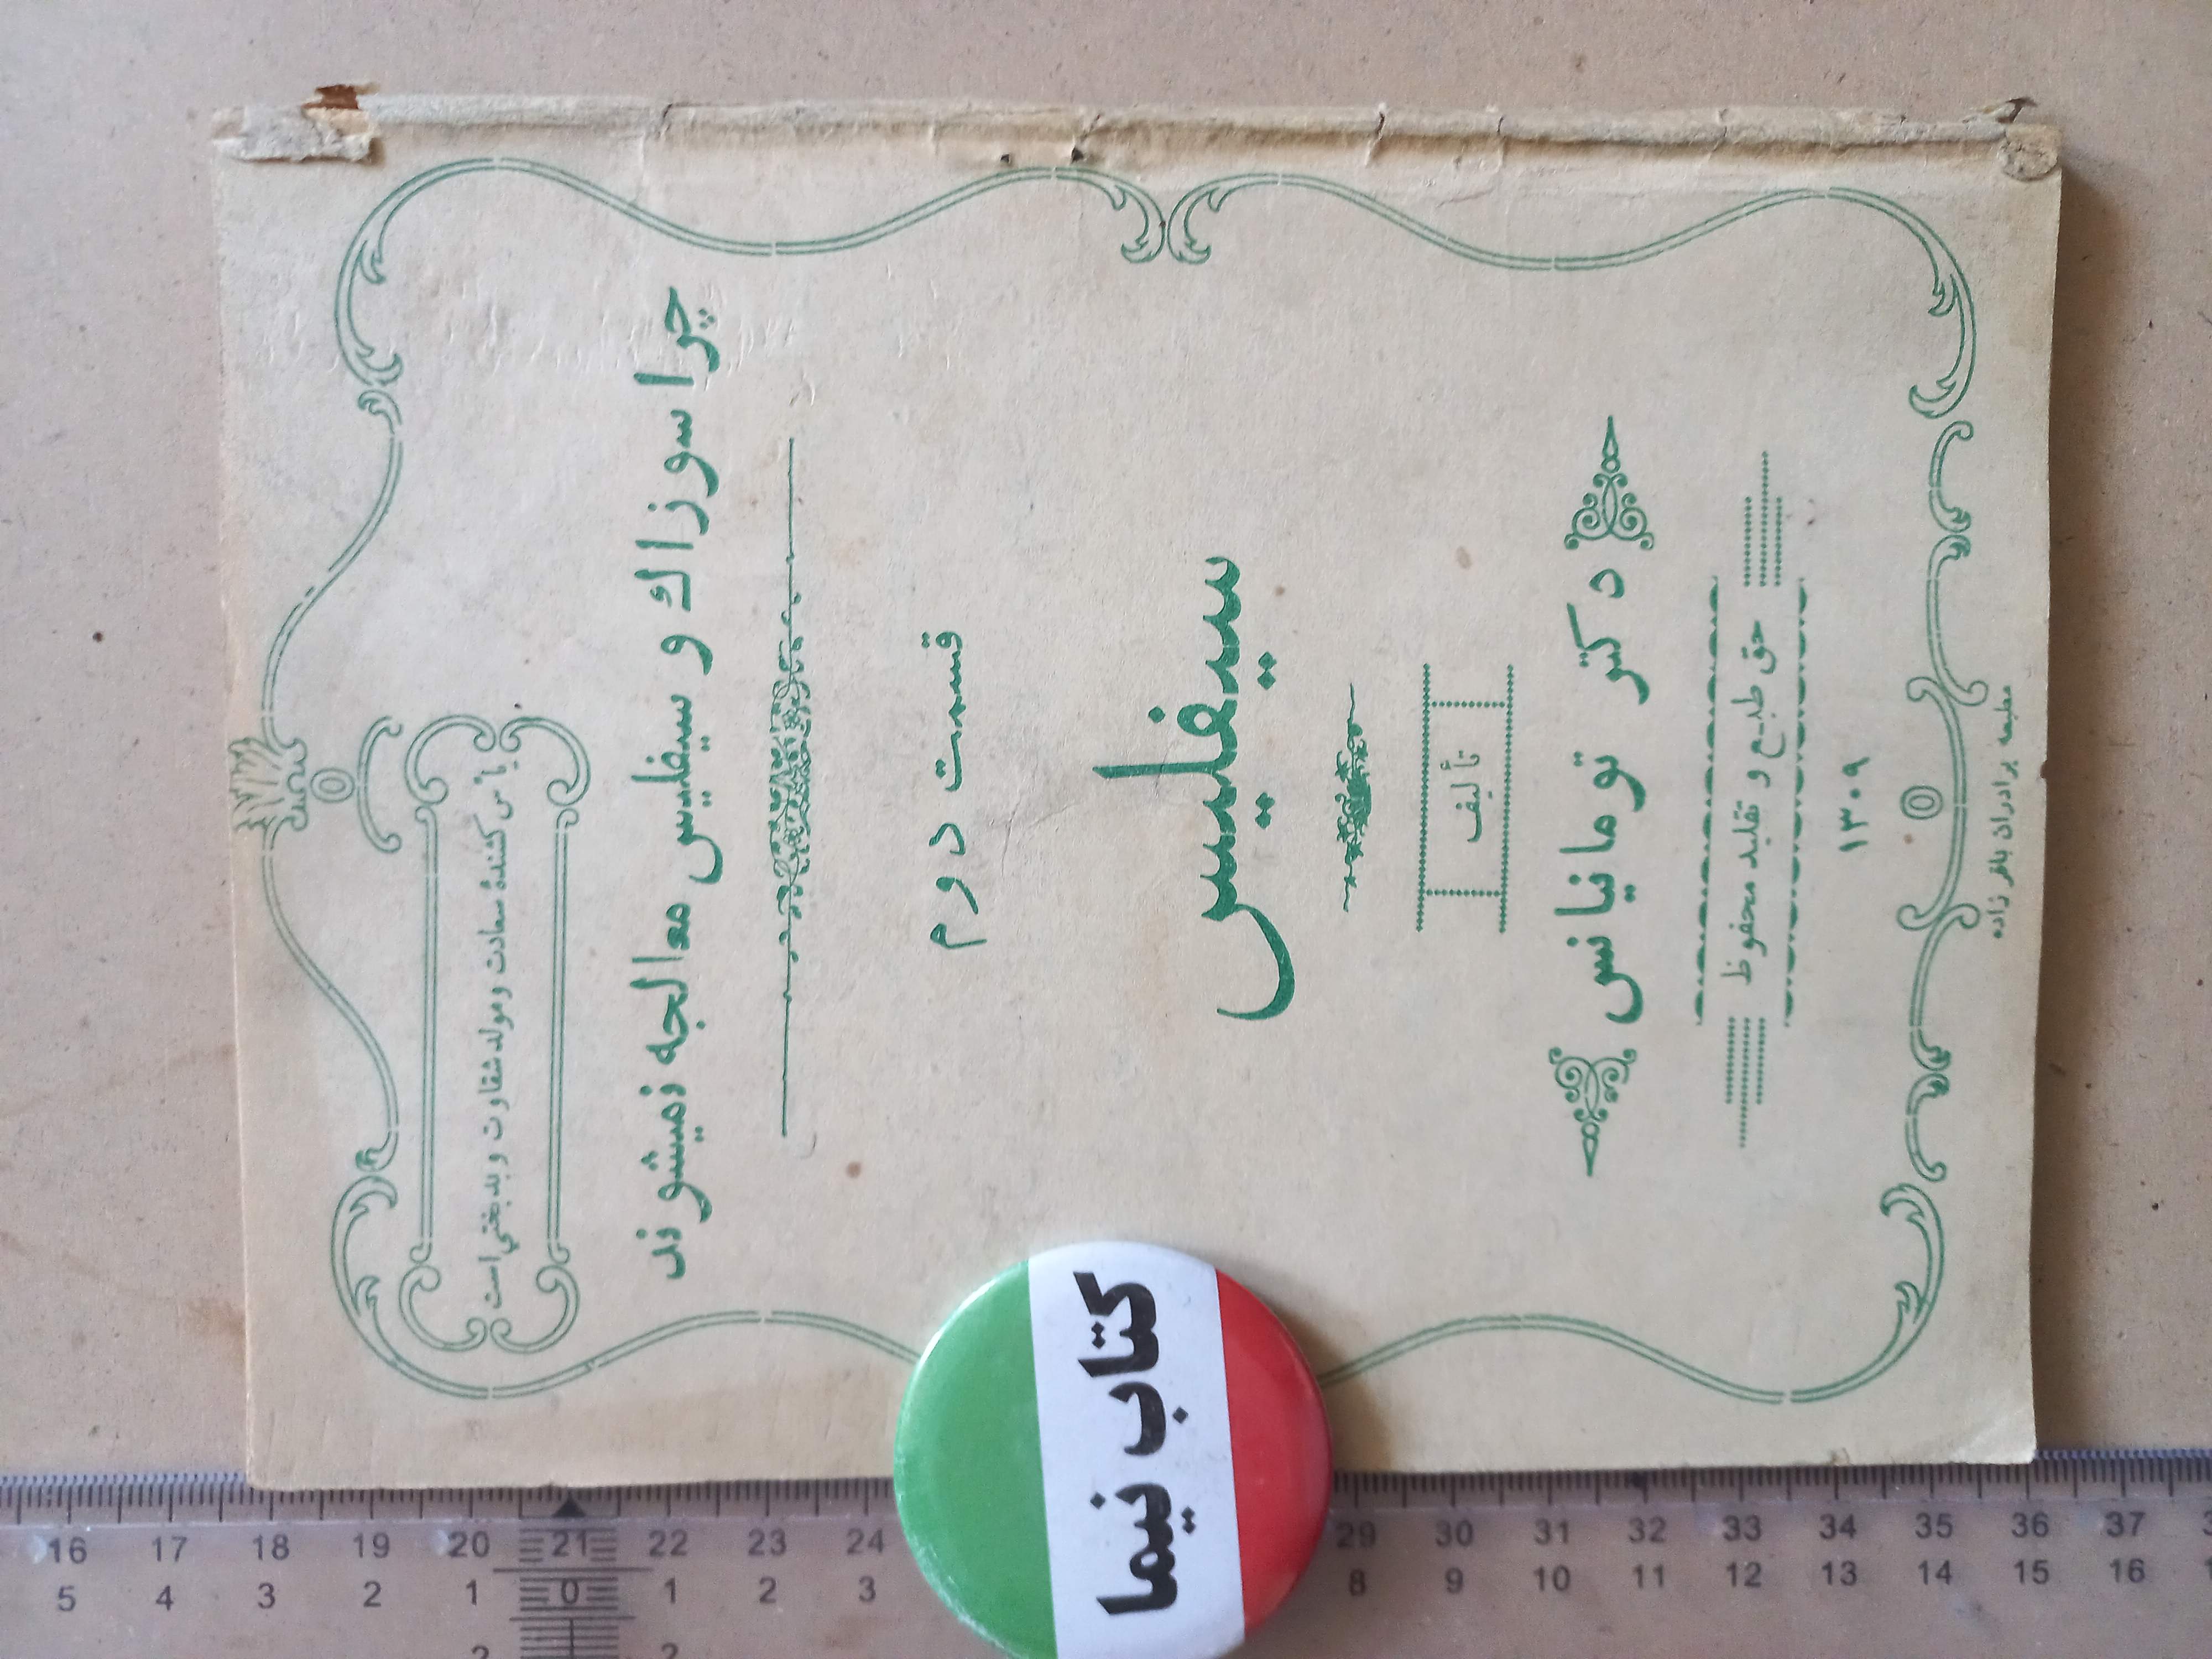 یأس کشندهٔ سعادت و مولد شقاوت و بدبختی است
چرا سوزاك و سیفلیس معالجه نمیشوند
قسمت دوم
سیفلیس
تألیف
دکتر تومانیانس
حق طبع و تقلید محفوظ
۱۳۰۹
مطبعه برادران باقر زاده
کتاب نیما
16 17 18 19 20 21 22 23 24 29 30 31 32 33 34 35 36 37
5 4 3 2 1 0 1 2 3 8 9 10 11 12 13 14 15 16
2 2